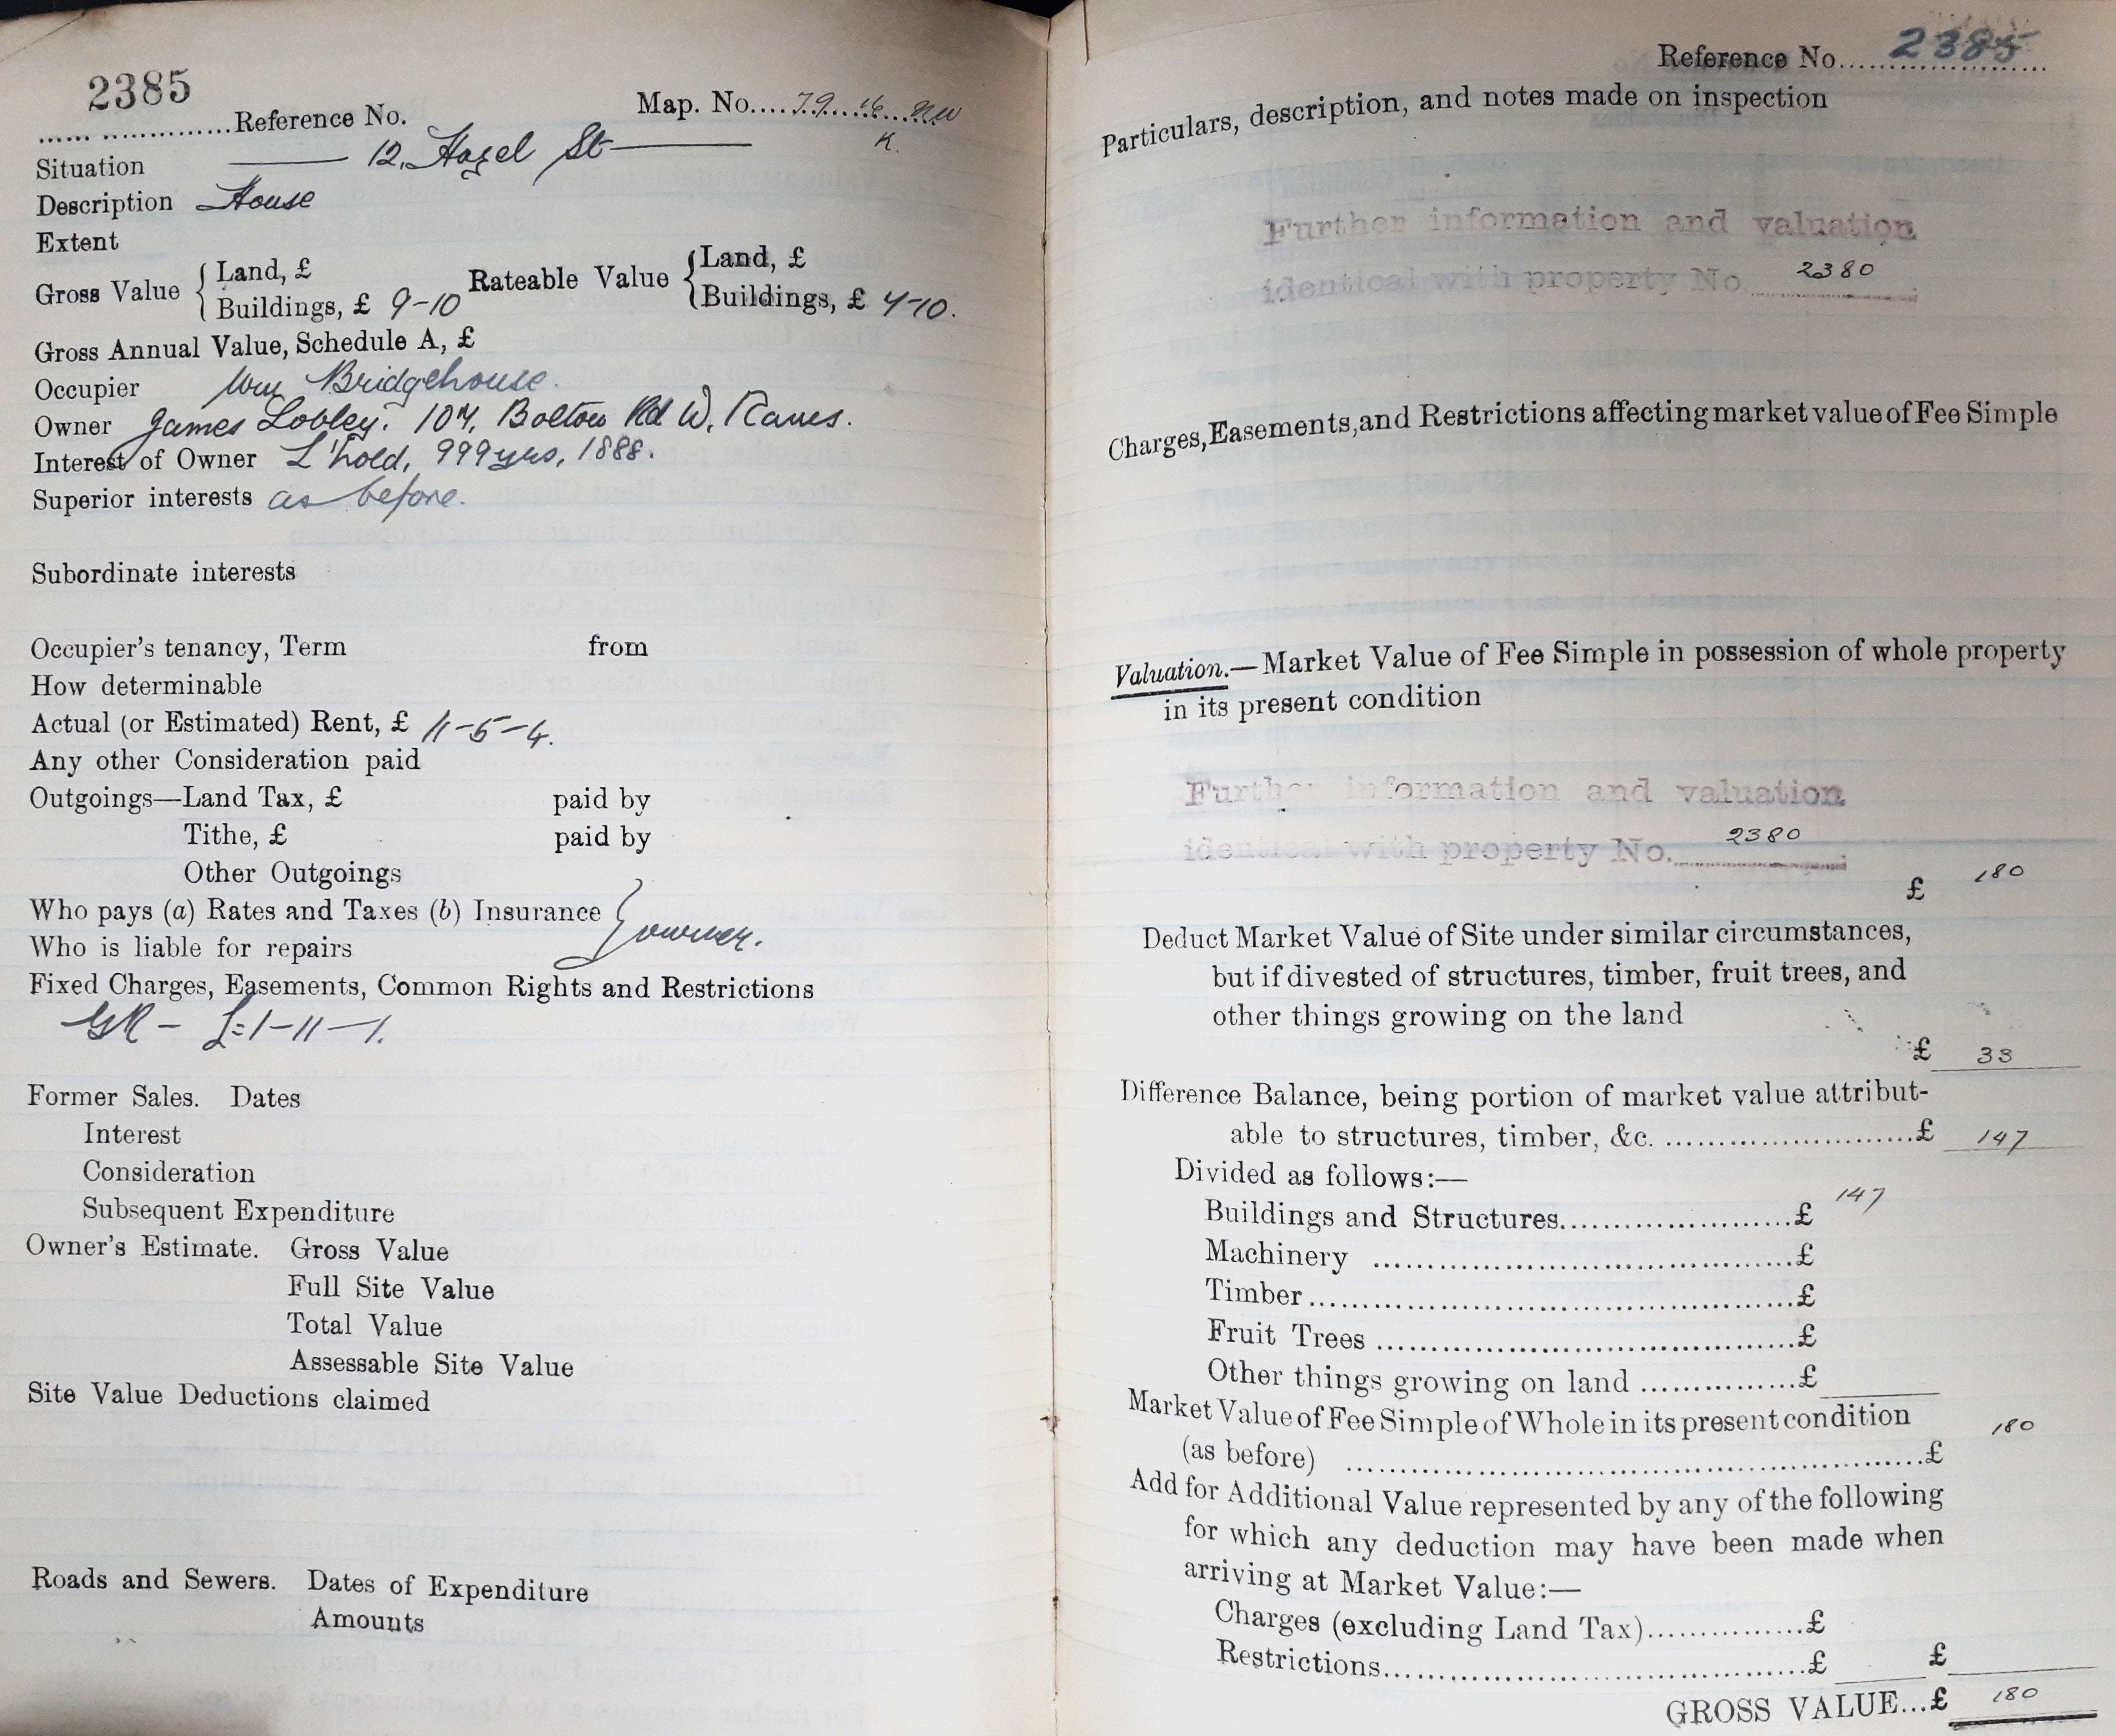 2385
...... ...............Reference No.
Map. No.... 79. 16. NW
K.
Situation —— 12, Hazel St ——
Description House
Extent
Gross Value { Land, £
Buildings, £ 9-10
Rateable Value { Land, £
Buildings, £ 4-10.
Gross Annual Value, Schedule A, £
Occupier Wm Bridgehouse.
Owner James Lobley. 107, Bolton Rd W, Rams.
Interest of Owner L'hold, 999 yrs, 1888.
Superior interests as before.
Subordinate interests
Occupier's tenancy, Term from
How determinable
Actual (or Estimated) Rent, £ 11-5-4.
Any other Consideration paid
Outgoings—Land Tax, £ paid by
Tithe, £ paid by
Other Outgoings
Who pays (a) Rates and Taxes (b) Insurance } owner.
Who is liable for repairs
Fixed Charges, Easements, Common Rights and Restrictions
GR - £1-11-1.
Former Sales. Dates
Interest
Consideration
Subsequent Expenditure
Owner's Estimate. Gross Value
Full Site Value
Total Value
Assessable Site Value
Site Value Deductions claimed
Roads and Sewers. Dates of Expenditure
Amounts
Reference No. 2385
Particulars, description, and notes made on inspection
Further information and valuation
identical with property No. 2380
Charges, Easements, and Restrictions affecting market value of Fee Simple
Valuation.—Market Value of Fee Simple in possession of whole property
in its present condition
Further information and valuation
identical with property No. 2380
£ 180
Deduct Market Value of Site under similar circumstances,
but if divested of structures, timber, fruit trees, and
other things growing on the land
£ 33
Difference Balance, being portion of market value attribut-
able to structures, timber, &c. ........................£ 147
Divided as follows:—
Buildings and Structures........................£ 147
Machinery ........................£
Timber........................£
Fruit Trees ........................£
Other things growing on land ...............£
Market Value of Fee Simple of Whole in its present condition
(as before) ........................£ 180
Add for Additional Value represented by any of the following
for which any deduction may have been made when
arriving at Market Value:—
Charges (excluding Land Tax)...............£
Restrictions........................£ £
GROSS VALUE...£ 180